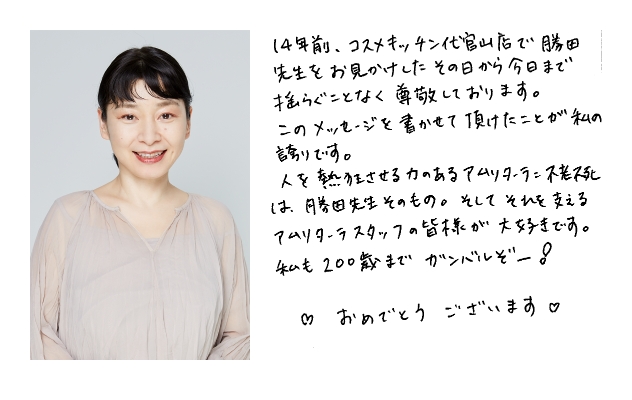 14年前、コスメキッチン代官山店で勝田
先生をお見かけしたその日から今日まで
揺らぐことなく尊敬しております。
このメッセージを書かせて頂けたことが私の
誇りです。
人を熱狂させる力のあるアムリターラ=不老不死
は、勝田先生そのもの。そしてそれを支える
アムリターラスタッフの皆様が大好きです。
私も200歳までガンバルぞー!
♡ おめでとうございます ♡